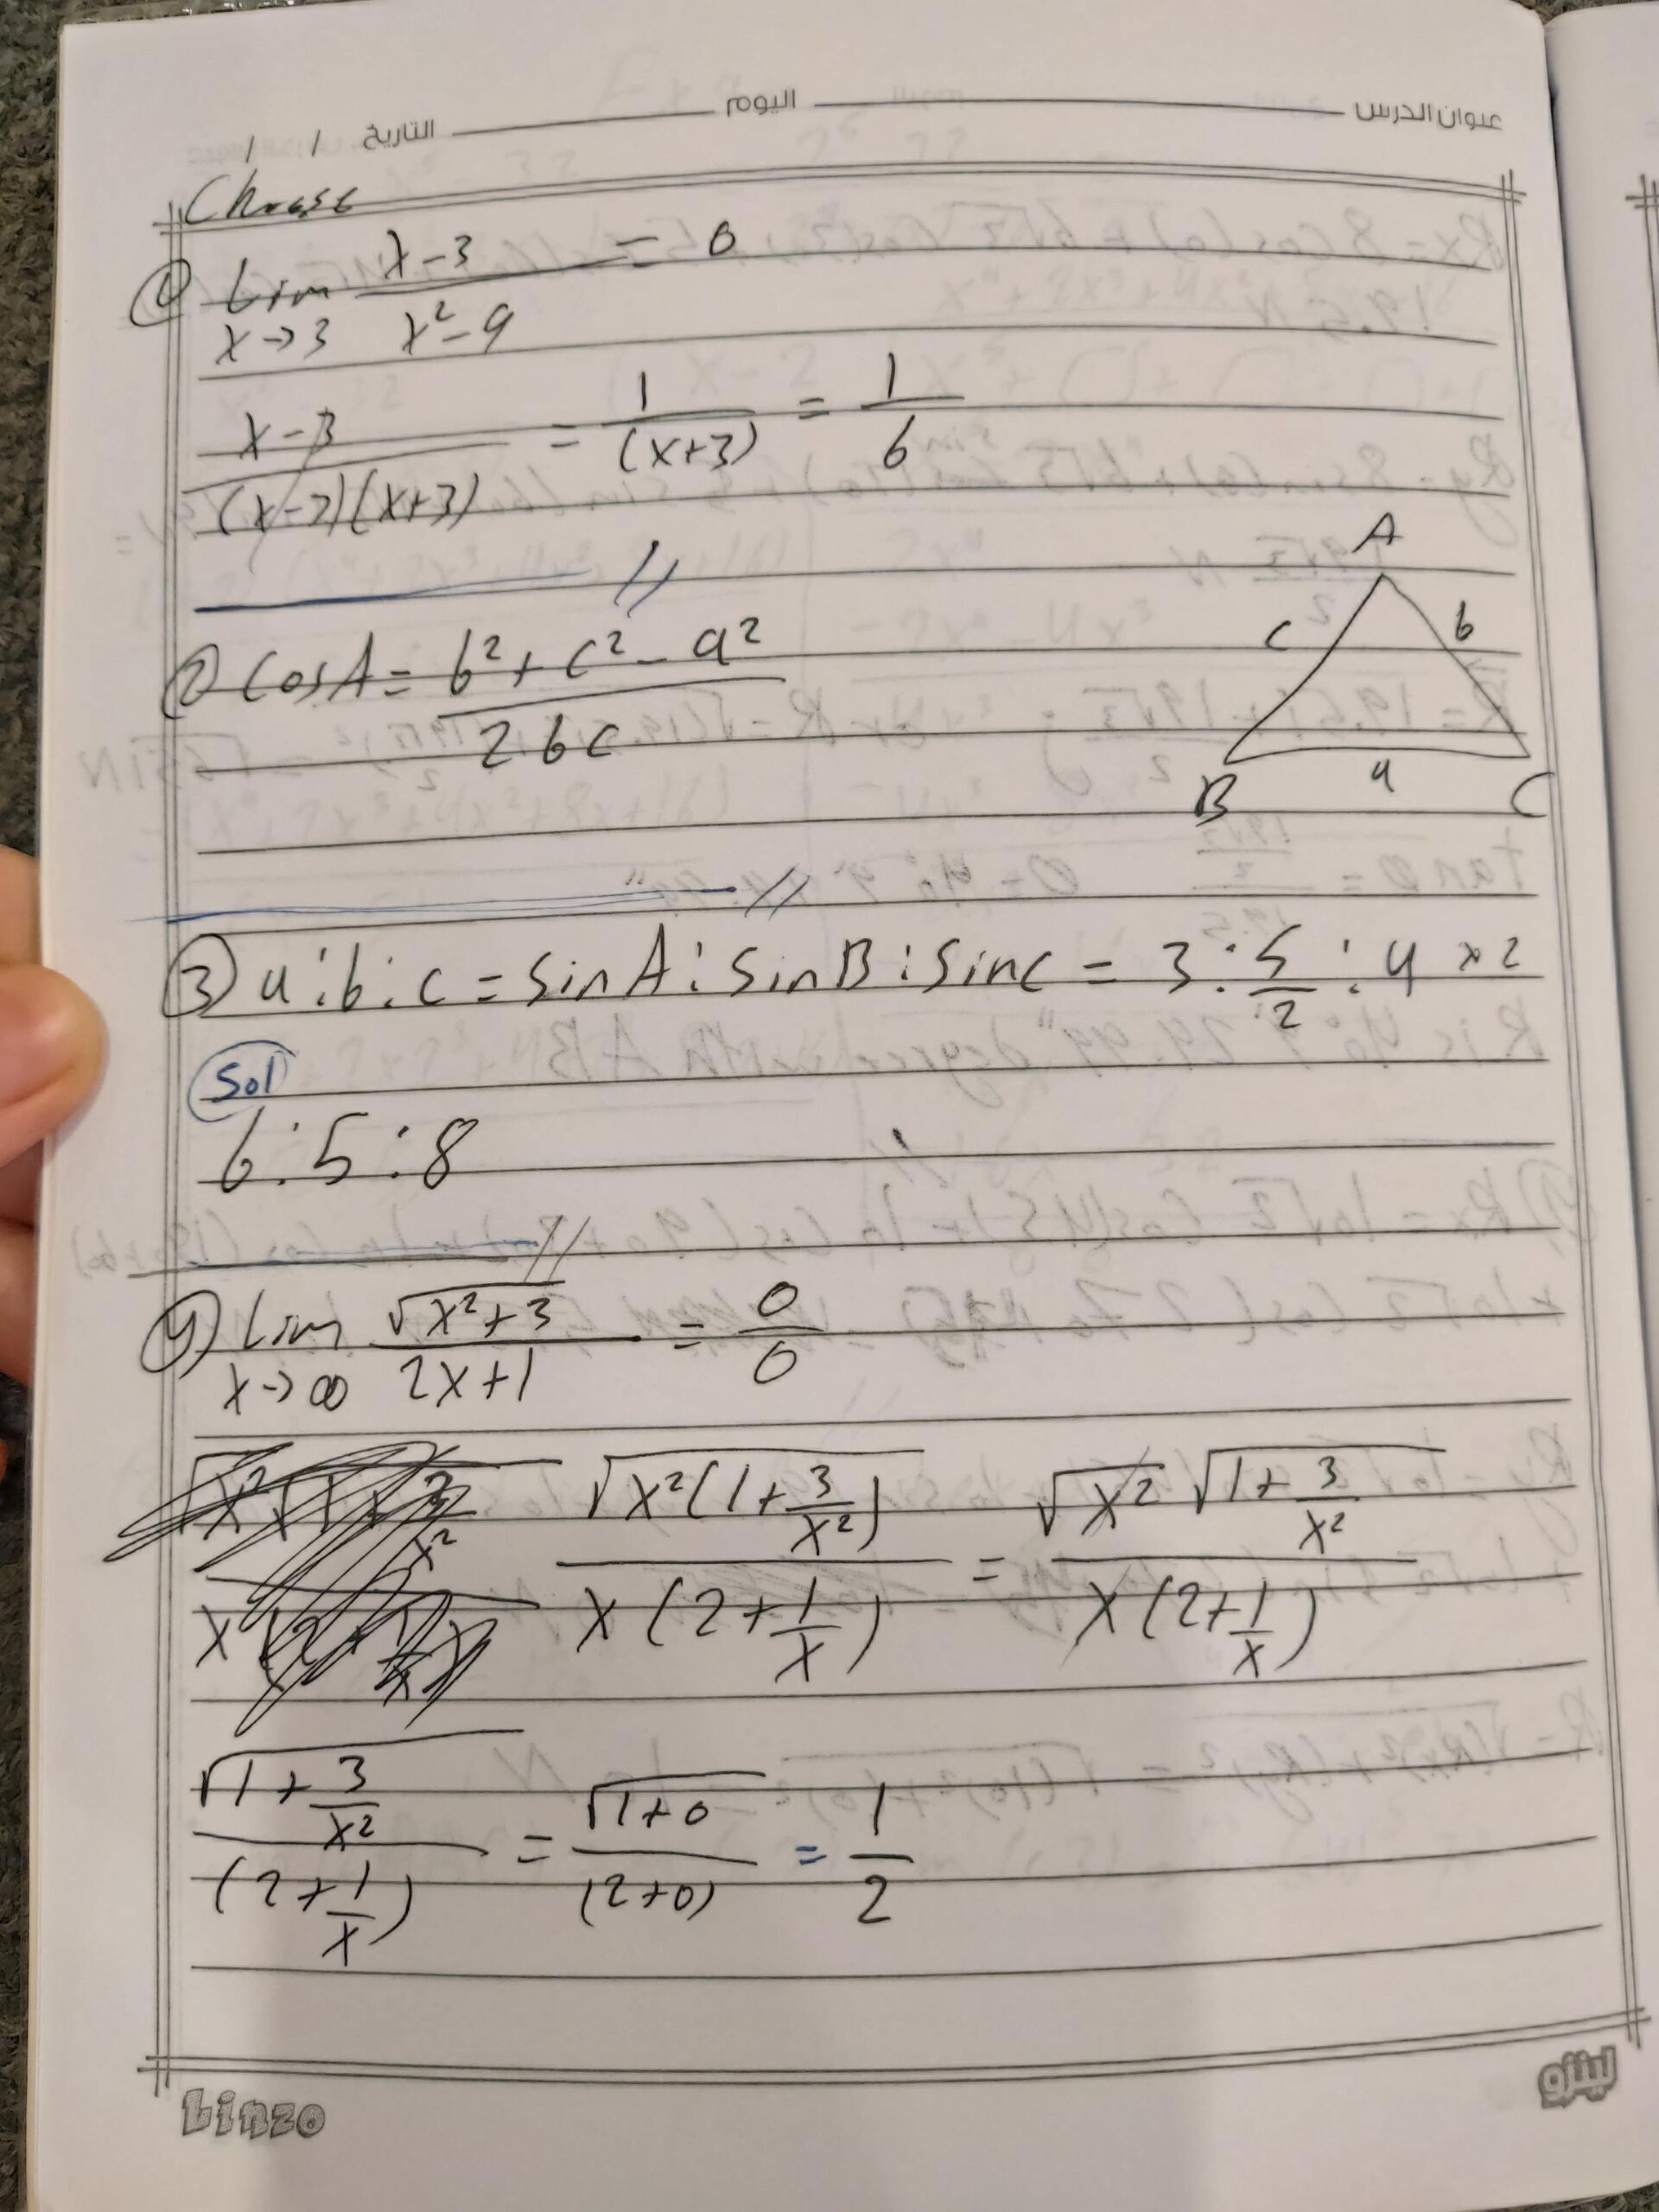 عنوان الدرس اليوم التاريخ / /
Choose
① Lim x→3 (x-3)/(x²-9) = 0
(x-3)/((x-3)(x+3)) = 1/(x+3) = 1/6
② CosA = (b²+c²-a²)/(2bc)
A
c b
B a C
③ a:b:c = sinA : sinB : sinc = 3 : 5/2 : 4 ×2
Sol
6:5:8
④ Lim x→∞ √(x²+3)/(2x+1) = 0/0
√(x²(1+3/x²))/(x(2+1/x)) = √x² √(1+3/x²)/(x(2+1/x))
√(1+3/x²)/(2+1/x) = √(1+0)/(2+0) = 1/2
Linzo لينزو